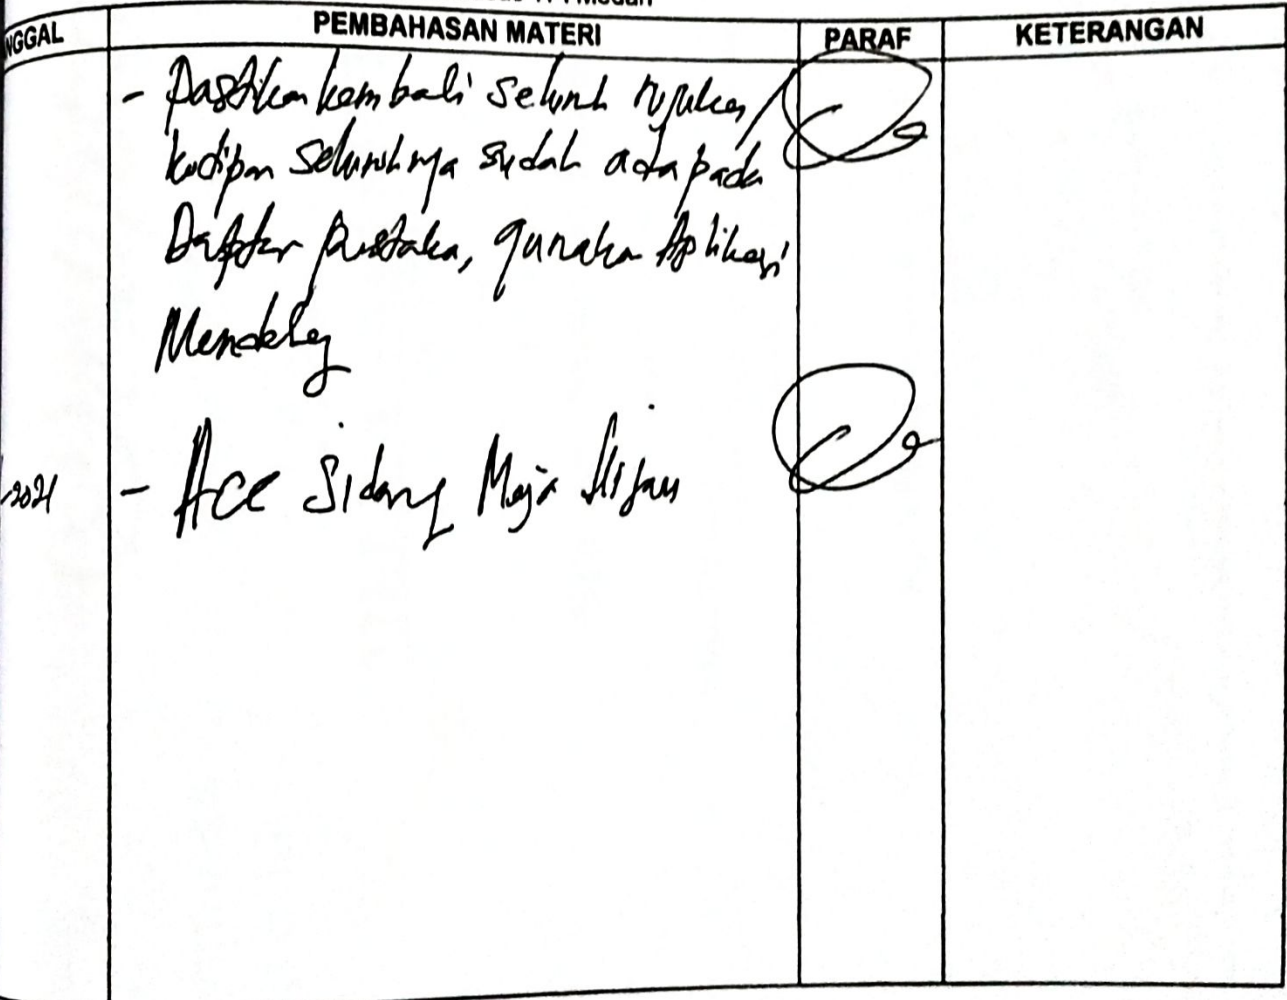 NGGAL PEMBAHASAN MATERI PARAF KETERANGAN
- Pastikan kembali seluruh rujukan/
kutipan seluruhnya sudah ada pada
Daftar pustaka, gunakan Aplikasi
Mendeley
2021 - Acc Sidang Meja Hijau